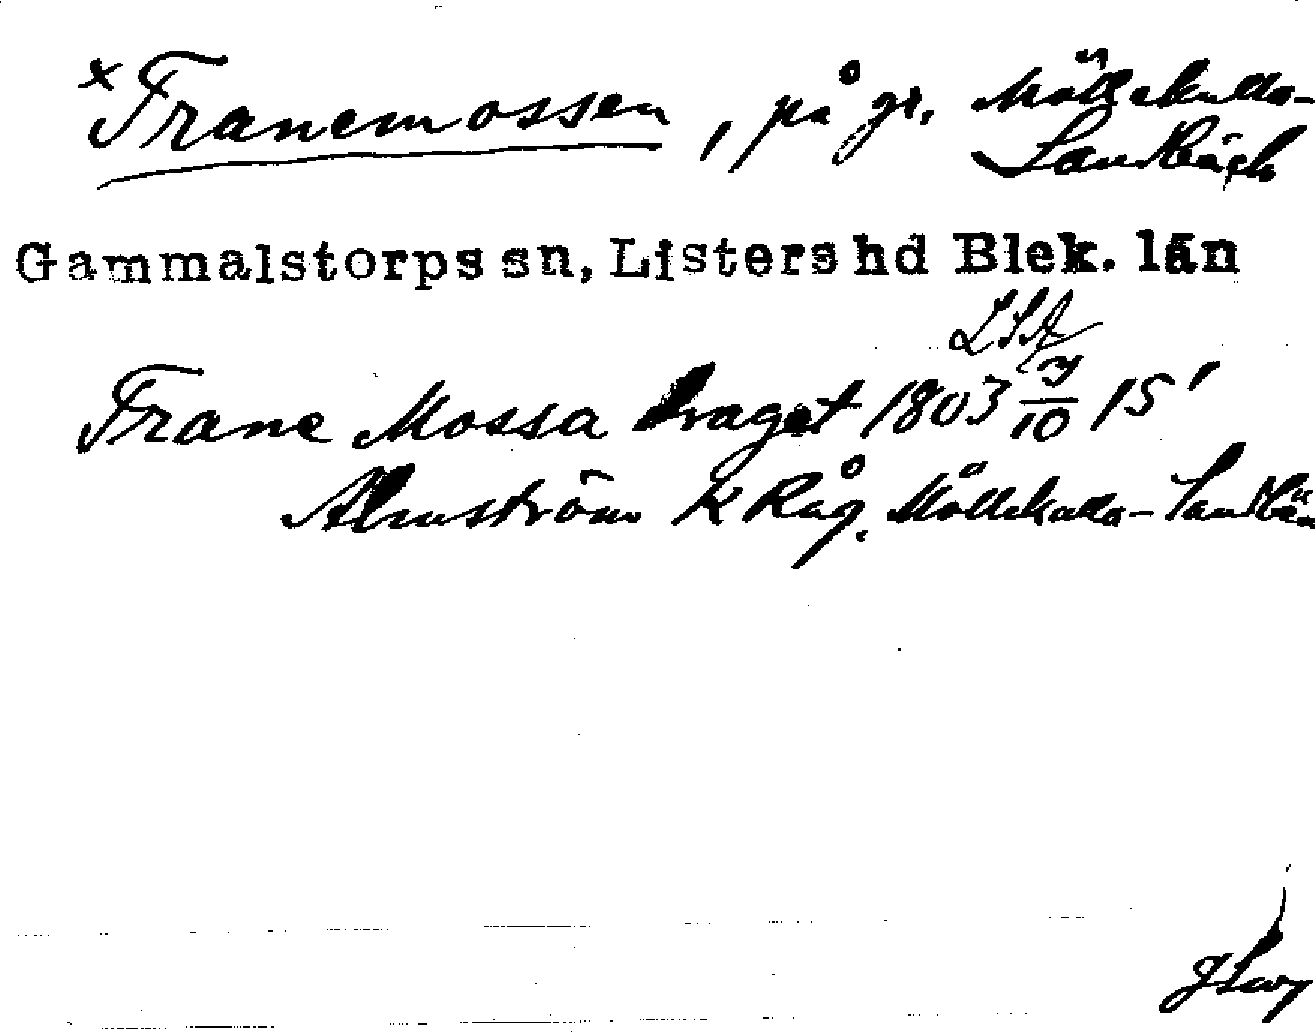 ×Franemossen, på gr. Möllekulla-
Sandbäck
Gammalstorps sn, Listers hd Blek. län
LSA
Frane Mossa draget 1803 3/10 15'
Almström K Råg. Möllekulla-Sandbä